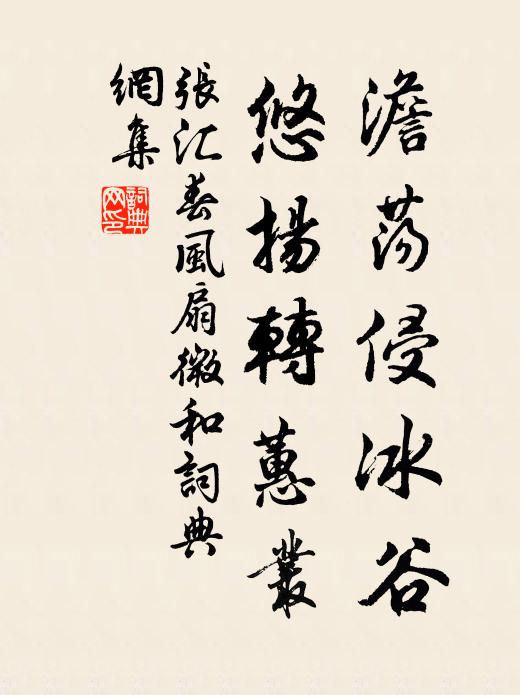 澹蕩侵冰谷
悠揚轉蕙叢
張汇春風扇微和詞典
網集
詞典
网印